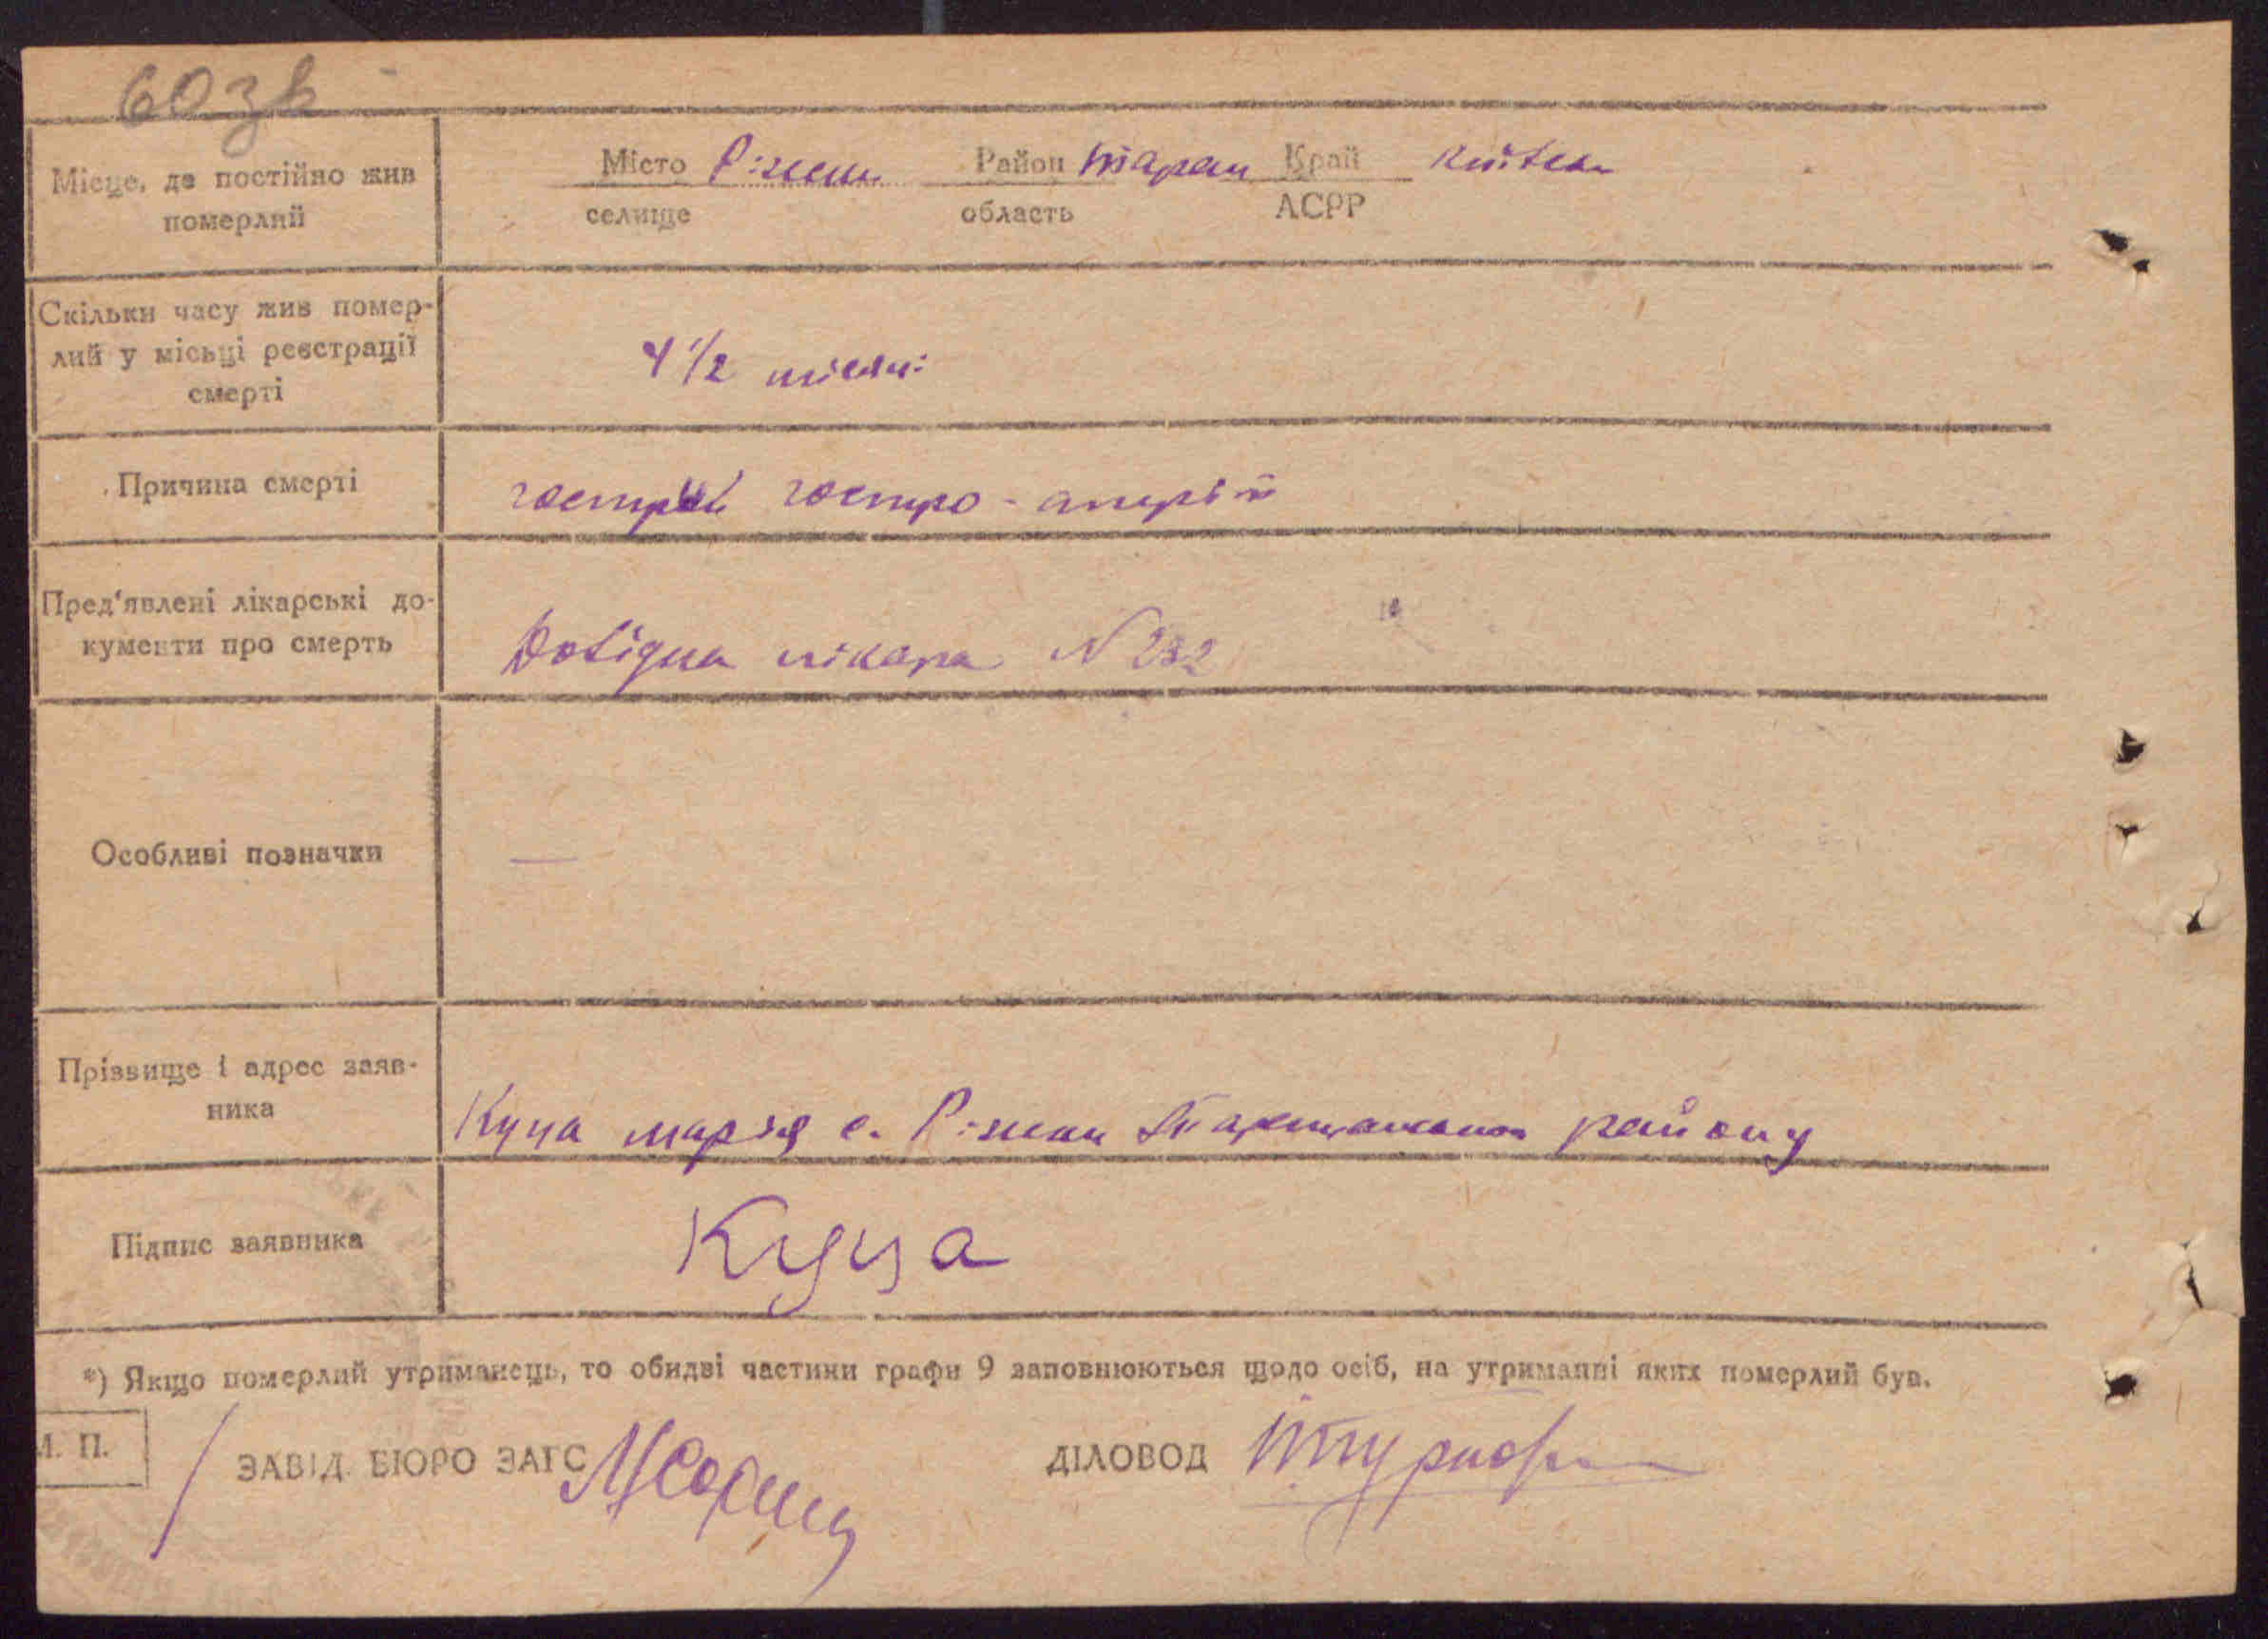 60зв
Місце, де постійно жив
померлий
Місто Ріжки Район Таращ Край Київськ
селище область АСРР
Скільки часу жив помер-
лий у місьці реєстрації
смерті
4 1/2 місяці
Причина смерті
гострий гостро-
Пред'явлені лікарські до-
кументи про смерть
Довідка лікаря N 232
Особливі позначки
—
Прізвище і адрес заяв-
ника
Куца марія с. Ріжки Таращанського району
Підпис заявника
Куца
*) Якщо померлий утриманець, то обидві частини графи 9 заповнюються щодо осіб, на утриманні яких померлий був.
М. П.
ЗАВІД. БЮРО ЗАГС
ДІЛОВОД